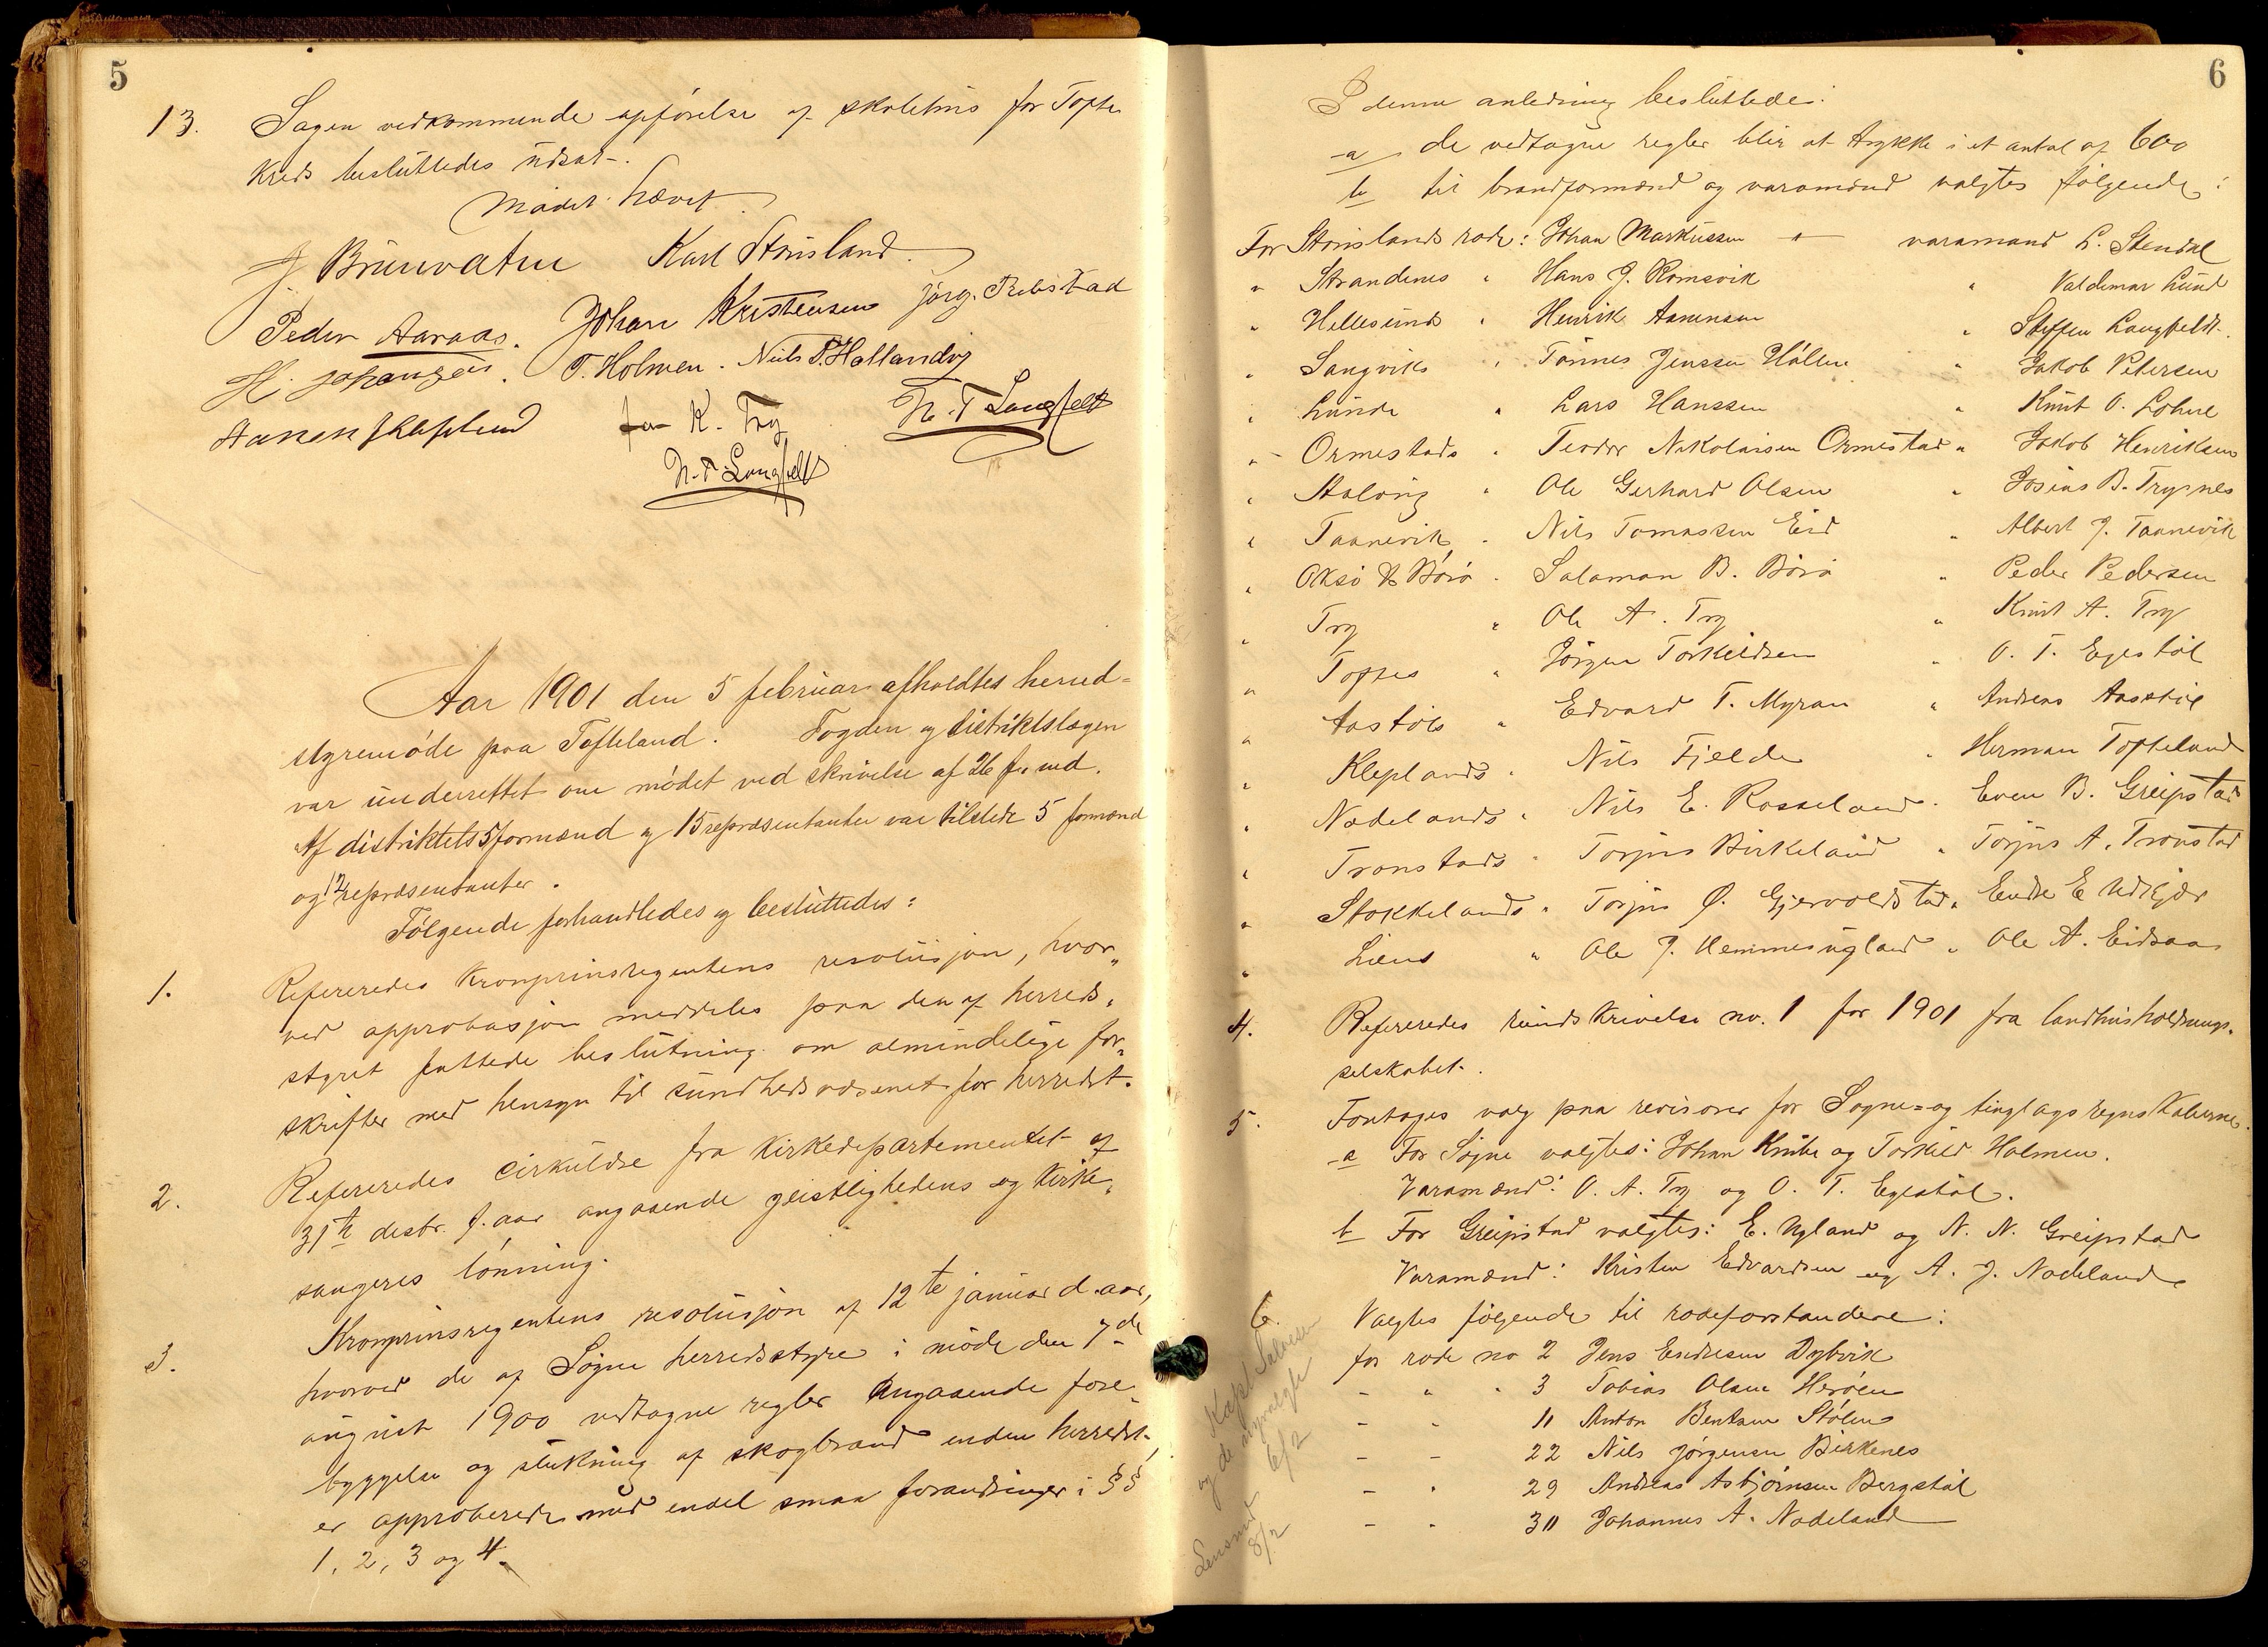 5
13. Sagen vedkommende opførelse af skolehus for Tofte
kreds besluttedes udsat.
Mødet hævet.
J Brunvatne Karl Stausland.
Peder Aaraas. Johan Kristensen Jørg. Rebstad
H. Johansen. T. Holmen. Niels P. Hallandvij
Aanen Kleplund for K. Try N. T Langfeldt
N. T. Langfeldt
Aar 1901 den 5 februar afholdtes herred=
styremøde paa Tofteland. Fogden og distriktslægen
var underrettet om mødet ved skrivelse af 26 f. md.
Af distriktets 5 formænd og 15 repræsentanter var tilstede 5 formænd
og 12 repræsentanter.
Følgende forhandledes og besluttedes:
1. Refereredes kronprinsregentens resolusjon, hvor„
ved approbasjon meddeles paa den af herreds„
styret fattede beslutning om almindelige for„
skrifter med hensyn til sundhedsvæsenet for herredet.
2. Refereredes cirkulære fra kirkedepartementet af
31te desbr. f. aar angaaende geistlighedens og kirke„
sangeres lønning.
3. Kronprinsregentens resolusjon af 12te januar d. aar,
hvorved de af Søgne herredsstyre i møde den 7de
august 1900 vedtagne regler angaaende fore„
byggelse og slukning af skogbrand inden herredet,
er approberede med endel smaa forandringer i §§
1, 2, 3 og 4.
6
I denne anledning besluttedes:
a de vedtagne regler blir at trykke i et antal af 600
b til brandformænd og varamænd valgtes følgende:
For Stauslands rode: Johan Markussen " varamand L. Stendal
" Strandenes " Hans J. Romsvik " Valdemar Lund
" Hellesunds " Henrik Aanensen " Steffen Langfeldt.
" Langviks " Tønnes Jenssen Høllen " Jakob Petersen
" Lunde " Lars Hanssen " Knut O. Lohne
" Ormestads " Teodor Nikolaisen Ormestad " Jakob Henriksen
" Aaløug " Ole Gerhard Olsen " Josias B. Trysnes
" Taanevik " Nils Tomassen Eid " Albert J. Taanevik
" Oksø & Borø " Salamon B. Borø " Peder Pedersen
" Try " Ole A. Try " Knut A. Try
" Toftes " Jørgen Torkildsen " O. T. Egestøl
" Aastøls " Edvard T. Myran " Andreas Aastøl
" Kleplands " Nils Fjelde " Herman Tofteland
" Nodelands " Nils E. Rosseland " Even B. Greipstad
" Tronstads " Torjus Birkeland " Torjus A. Tronstad
" Stokkelands " Torjus Ø. Gjervoldstad " Endre E Udkjær
" Liens " Ole J. Hemmesugland " Ole A. Eidsaa
4. Refereredes rundskrivelse no. 1 for 1901 fra landhusholdnings„
selskabet.
5. Foretoges valg paa revisorer for Sogne= og tinglagsregnskaberne.
a For Søgne valgtes: Johan Knibe og Torkild Holmen.
Varamænd: O. A. Try og O. T. Egestøl.
b For Greipstad valgtes: E. Ugland og N. N. Greipstad
Varamænd: Kristen Edvardsen og A. J. Nodeland
6. Valgtes følgende til rodeforstandere:
for rode no 2 Jens Endresen Dybvik
- " " 3 Tobias Olsen Herøen
- " 11 Anton Bentsen Stølen
- - 22 Nils Jørgensen Birkenes
- " 29 Andreas Asbjørnsen Bergstøl
- " 30 Johannes A. Nodeland
Kapt Salvesen
og de nyvalgte
6/2
Lensmd
8/2